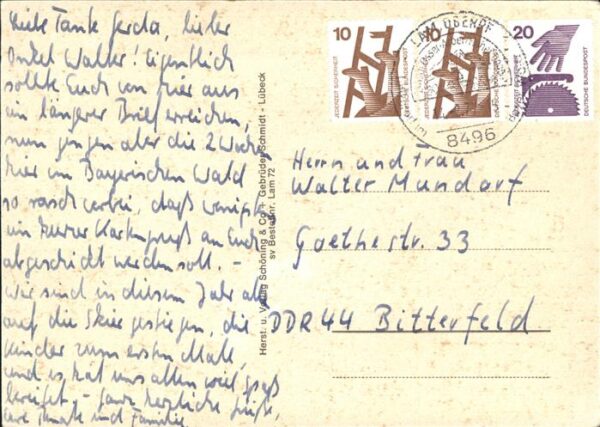 Liebe Tante Gerda, lieber
Onkel Walter! Eigentlich
sollte Euch von hier aus
ein längerer Brief erreichen,
nun gingen aber die 2 Wochen
hier im Bayerischen Wald
so rasch vorbei, daß wenigst.
ein kurzer Kartengruß an Euch
abgeschickt werden soll. –
Wir sind in diesem Jahr alle
auf die Skier gestiegen, die
Kinder zum ersten Male,
und es hat uns allen viel Spaß
bereitet – ganz herzliche Grüße,
Eure und Familie
Herst. u. Verlag Schöning & Co + Gebrüder Schmidt · Lübeck
sv Bestellnr. Lam 72
10
JEDERZEIT SICHERHEIT
DEUTSCHE BUNDESPOST
10
JEDERZEIT SICHERHEIT
DEUTSCHE BUNDESPOST
20
DEUTSCHE BUNDESPOST
LAM, OBERPF
8496
Herrn und Frau
Walter Mundorf
Goethestr. 33
DDR 44 Bitterfeld